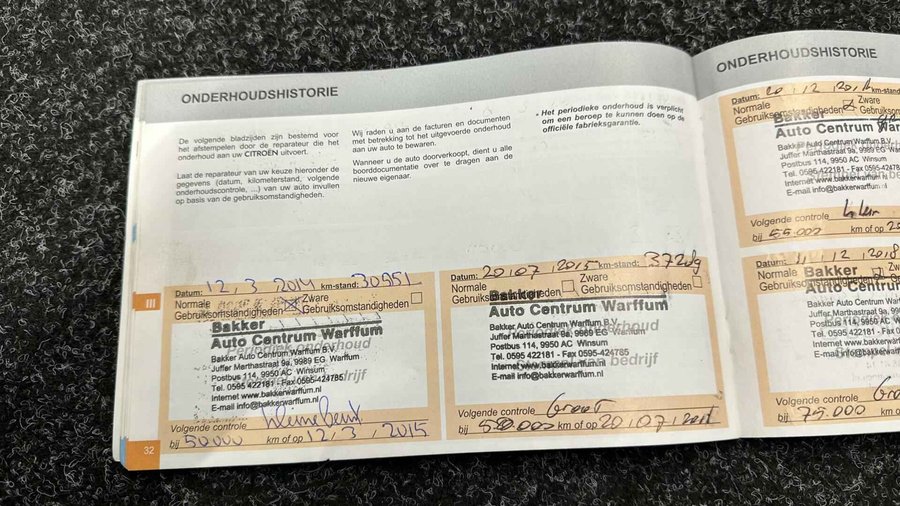 ONDERHOUDSHISTORIE
De volgende bladzijden zijn bestemd voor
het afstempelen door de reparateur die het
onderhoud aan uw CITROËN uitvoert.
Laat de reparateur van uw keuze hieronder de
gegevens (datum, kilometerstand, volgende
onderhoudscontrole, ...) van uw auto invullen
op basis van de gebruiksomstandigheden.
Wij raden u aan de facturen en documenten
met betrekking tot het uitgevoerde onderhoud
aan uw auto te bewaren.
Wanneer u de auto doorverkoopt, dient u alle
boorddocumentatie over te dragen aan de
nieuwe eigenaar.
- Het periodieke onderhoud is verplicht
om een beroep te kunnen doen op de
officiële fabrieksgarantie.
Datum: 12,3 2014 km-stand: 30951
Normale Zware
Gebruiksomstandigheden Gebruiksomstandigheden
Bakker
Auto Centrum Warffum
Periodiek onderhoud
Bakker Auto Centrum Warffum B.V.
Juffer Marthastraat 9a, 9989 EG Warffum
Postbus 114, 9950 AC Winsum
Tel. 0595 422181 - Fax 0595-424785
Internet www.bakkerwarffum.nl
E-mail info@bakkerwarffum.nl
Volgende controle kleine beurt
bij 50000 km of op 12,3 2015
III
32
Datum: 20,07,2015 km-stand:
Normale Zware
Gebruiksomstandigheden Gebruiksomstandigheden
Bakker
Auto Centrum Warffum
Bakker Auto Centrum Warffum B.V.
Juffer Marthastraat 9a, 9989 EG Warffum
Postbus 114, 9950 AC Winsum
Tel. 0595 422181 - Fax 0595-424785
Internet www.bakkerwarffum.nl
E-mail info@bakkerwarffum.nl
Volgende controle Groot
bij km of op 20,07,
ONDERHOUDSHISTORIE
Datum: 20,12, km-stand
Normale Zware
Gebruiksomstandigheden Gebruiksom
Bakker
Auto Centrum
Bakker Auto Centrum Warffum B.V.
Juffer Marthastraat 9a, 9989 EG Warffum
Postbus 114, 9950 AC Winsum
Tel. 0595-422181 - Fax 0595-4247
Internet www.bakkerwarffum.nl
E-mail info@bakkerwarffum.nl
Volgende controle
bij 55.000 km of op 20
Datum: 12,2018
Normale Zware
Gebruiksomstandigheden Gebruik
Bakker
Auto Centrum
Bakker Auto Centrum Warffum
Juffer Marthastraat 9a, 9989 E
Postbus 114, 9950 AC W
Tel. 0595-422181 - Fax
Internet www.bakkerwarf
E-mail info@bakkerwarff
Volgende controle
bij 75.000 km of op